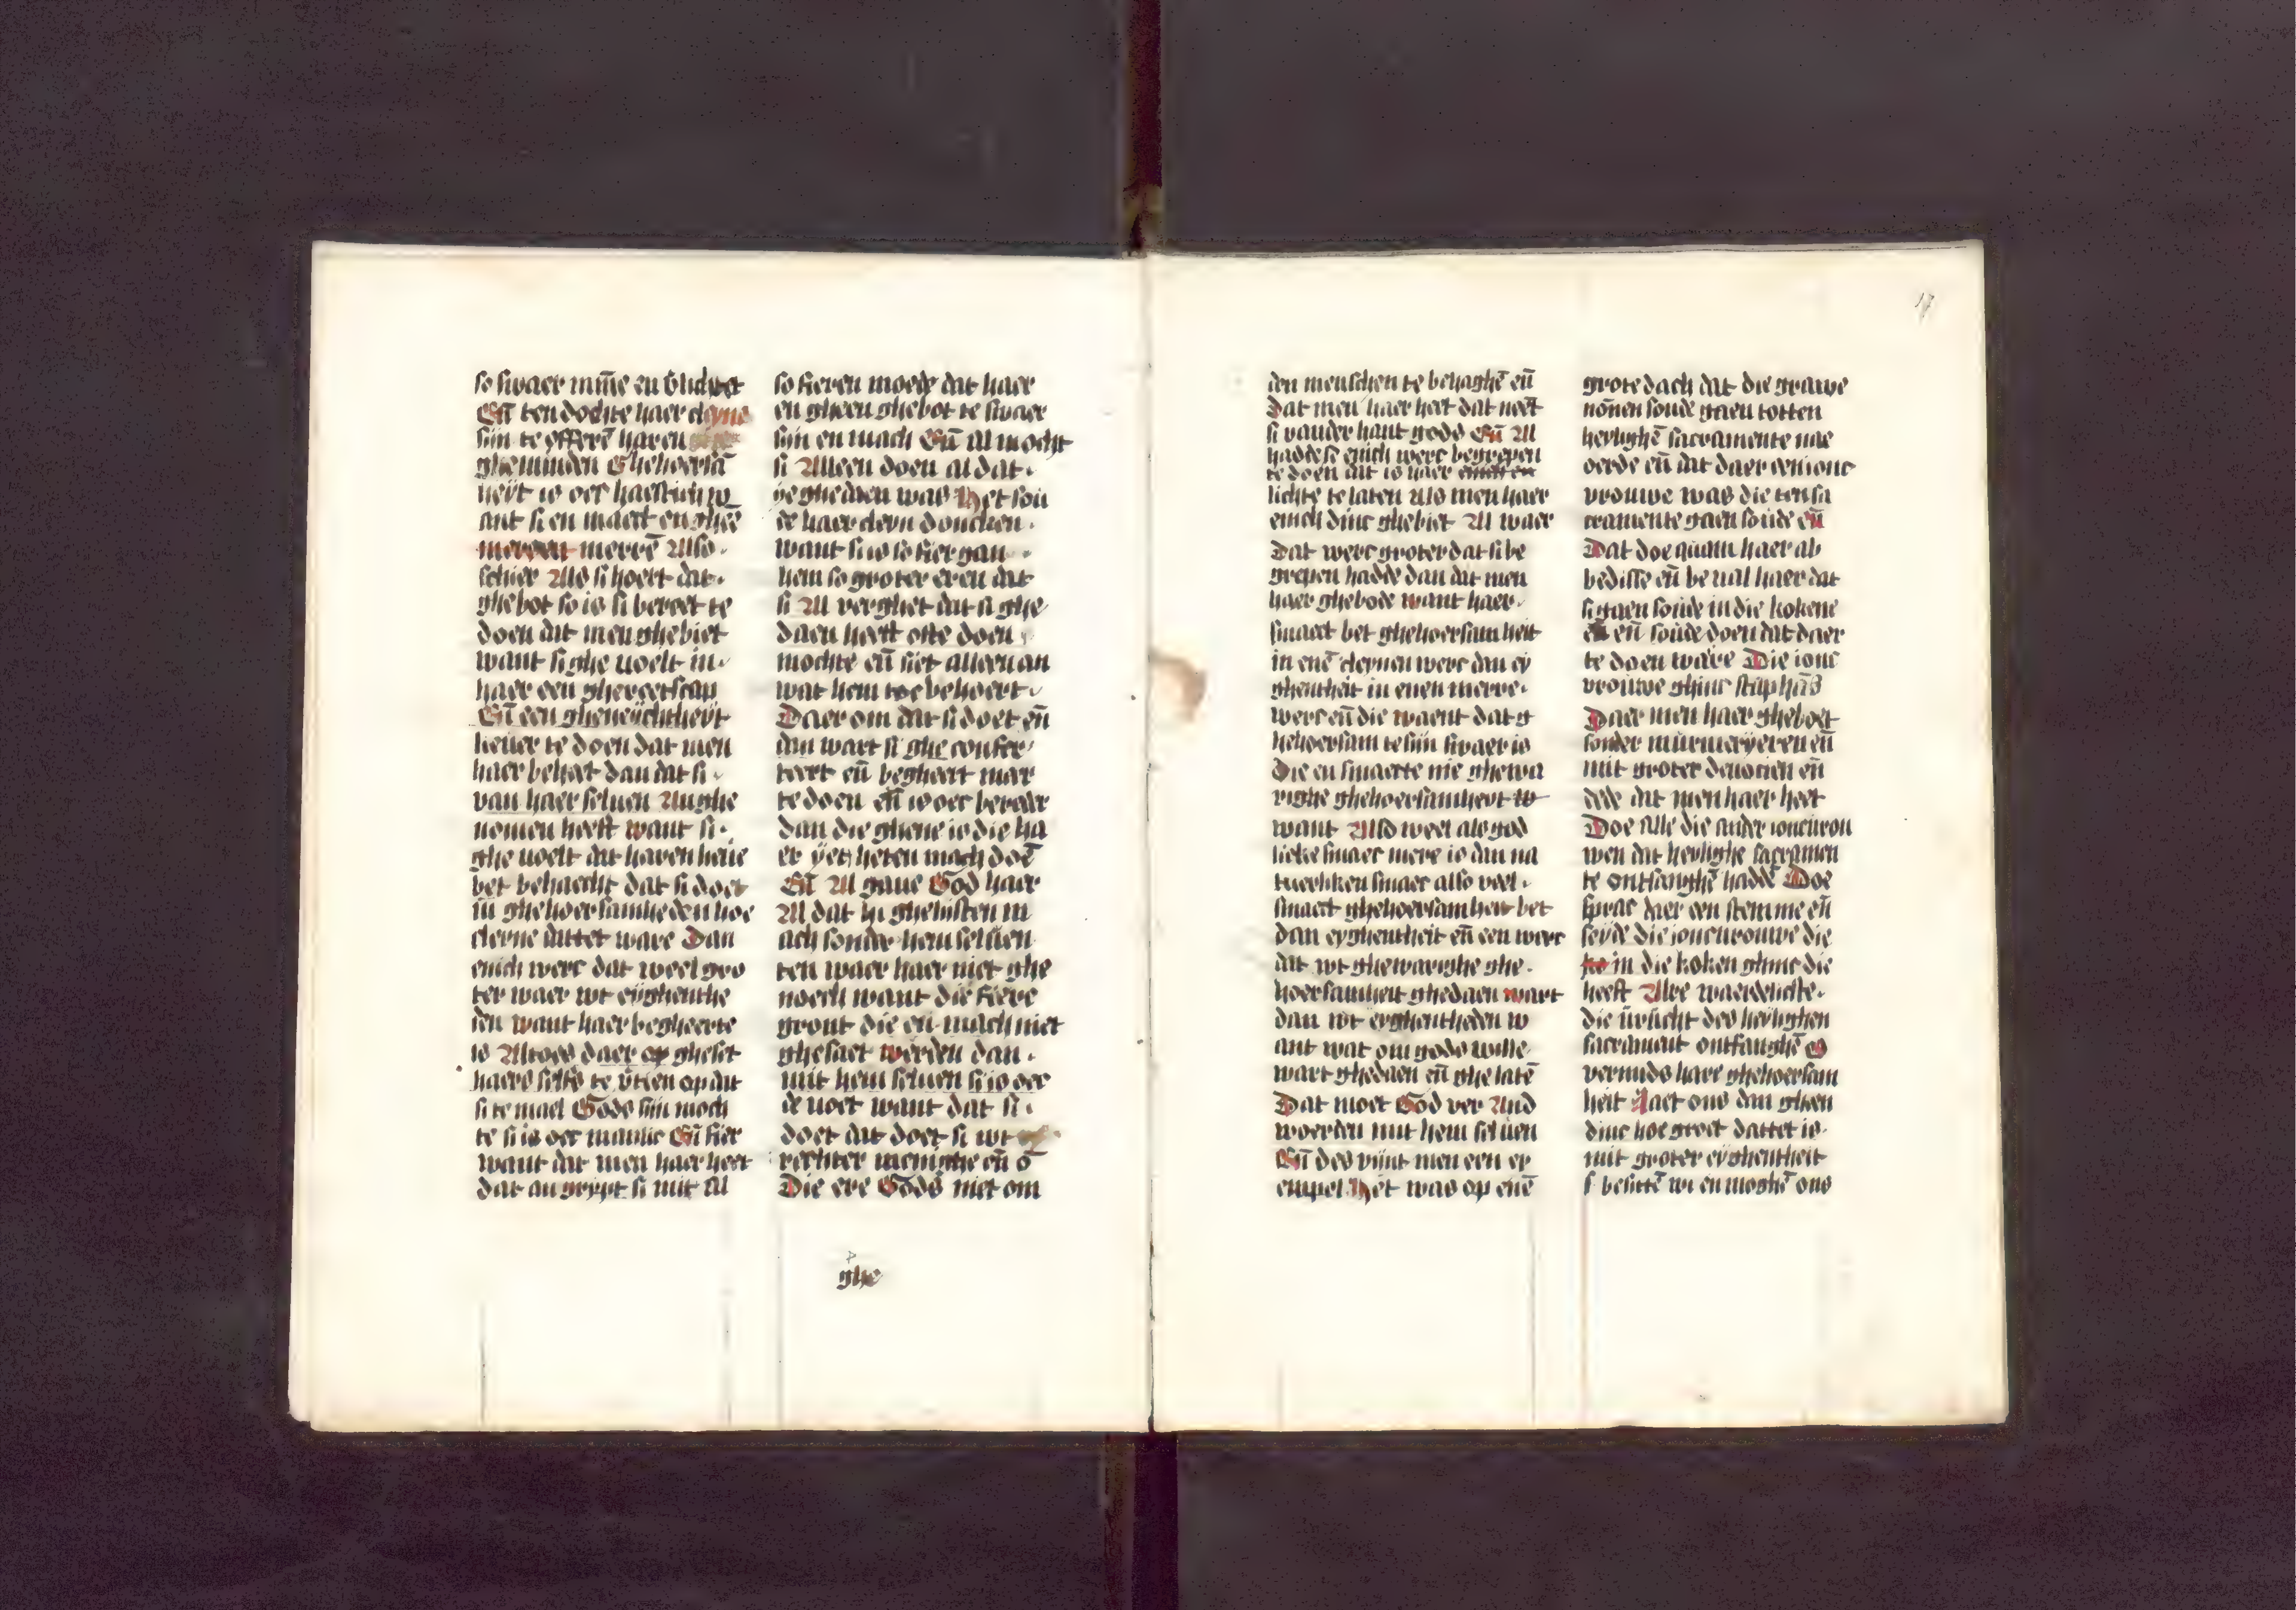 so swaer minne en v lichtet
Eñ ten dochte haer cleyne
sijn te offerē haren
gheminden Ghehoersā
heyt is oec haestich w
ant si en maect en gheē
merren merrē Also
schier Als si hoert dat
ghebot so is si bereet te
doen dat men ghebiet
want si ghe voelt in
haer een ghereetscap
Eñ een gheneychtheyt
lieuer te doen dat men
haer behiet dan dat si
van haer seluen An ghe
nomen heeft want si
ghe voelt dat haren lieue
bet behaecht dat si doet
in ghehoersamheden hoe
cleyne dattet ware Dan
enich werc dat veel gro
ter waer wt eyghenthe
den want haer begheerte
is Altoes daer op gheset
haers selfs te vtien op dat
si te mael Gods sijn moch
te si is oec manlic Eñ fier
want dat men haer heet
dat an grijpt si mit Al
so fieren moede dat haer
en gheen ghebot te swaer
sijn en mach Eñ Al mocht
si Alleen doen al dat
ye ghedaen was Het sou
de haer cleyn dōncken
want si is so fier gan
hem so groter eren dat
si Al verghet dat si ghe
daen heeft ofte doen
mochte eñ siet alleen an
wat hem toe behoert
Daer om dat si doet eñ
dan wart si ghe confor
teert eñ begheert meer
te doen eñ is oec bereder
dan die ghene is die ha
er yet heten mach doē
Eñ Al gaue God haer
Al dat hi ghelijsten m
ach sonder hem seluen
ten waer haer niet ghe
noech want die fiere
gront die en mach niet
ghesaet werden dan
mit hem seluen si is oec
de voet want dat si
doet dat doet si wt
rechter meninghe eñ ō
Die ere Gods niet om
ghe
den menschen te behaghē eñ
Dat men haer heet dat neēt
si vander hant gods Eñ Al
hadde si enich werc begrepen
te doen dat is haer
lichte te laten Als men haer
enich dinc ghebiet Al waer
Dat werc groter dat si be
grepen hadde dan dat men
haer ghebode want haer
smaect bet ghehoersamheit
in enē cleynen werc dan ey
ghentheit in enen merre
werc eñ die waent dat g
hehoersam te sijn swaer is
Die en smaecte nie ghewa
righe ghehoersamheyt
want Also veel als god
lieke smaec mere is dan na
tuerliken smaec also veel
smaect ghehoersamheit bet
dan eyghentheit eñ een werc
dat wt ghewarighe ghe
hoersamheit ghedaen wart
dan wt eyghentheden w
ant wat om gods wille
wart ghedaen eñ ghe latē
Dat moet God ver And
woerden mit hem seluen
Eñ des vijnt men een ex
empel Het was op enē
grote dach dat die grawe
nōnen soude gaen totten
heylighē sacramente nae
oerde eñ dat daer een ionc
vrouwe was die ten sa
cramente gaen soude eñ
Dat doe quam haer ab
bedisse eñ beual haer dat
si gaen soude in die kokene
eñ soude doen dat daer
te doen ware Die ionc
vrouwe ghinc staphās
Daer men haer gheboet
sonder murmeryeren eñ
mit groter deuocien eñ
dede dat men haer heet
Doe Alle die ander ioncurou
wen dat heylighe sacramen
te ontfanghē haddē Doe
sprac daer een stemme eñ
seyde die ioncurouwe die
in die koken ghinc die
heeft Alre waerdelicste
die vrucht des heylighen
sacrament ontfanghē
vermids hare ghehoersam
heit Laet ons dan gheen
dinc hoe groet dattet is
mit groter eyghentheit
besittē wi en moghē ons